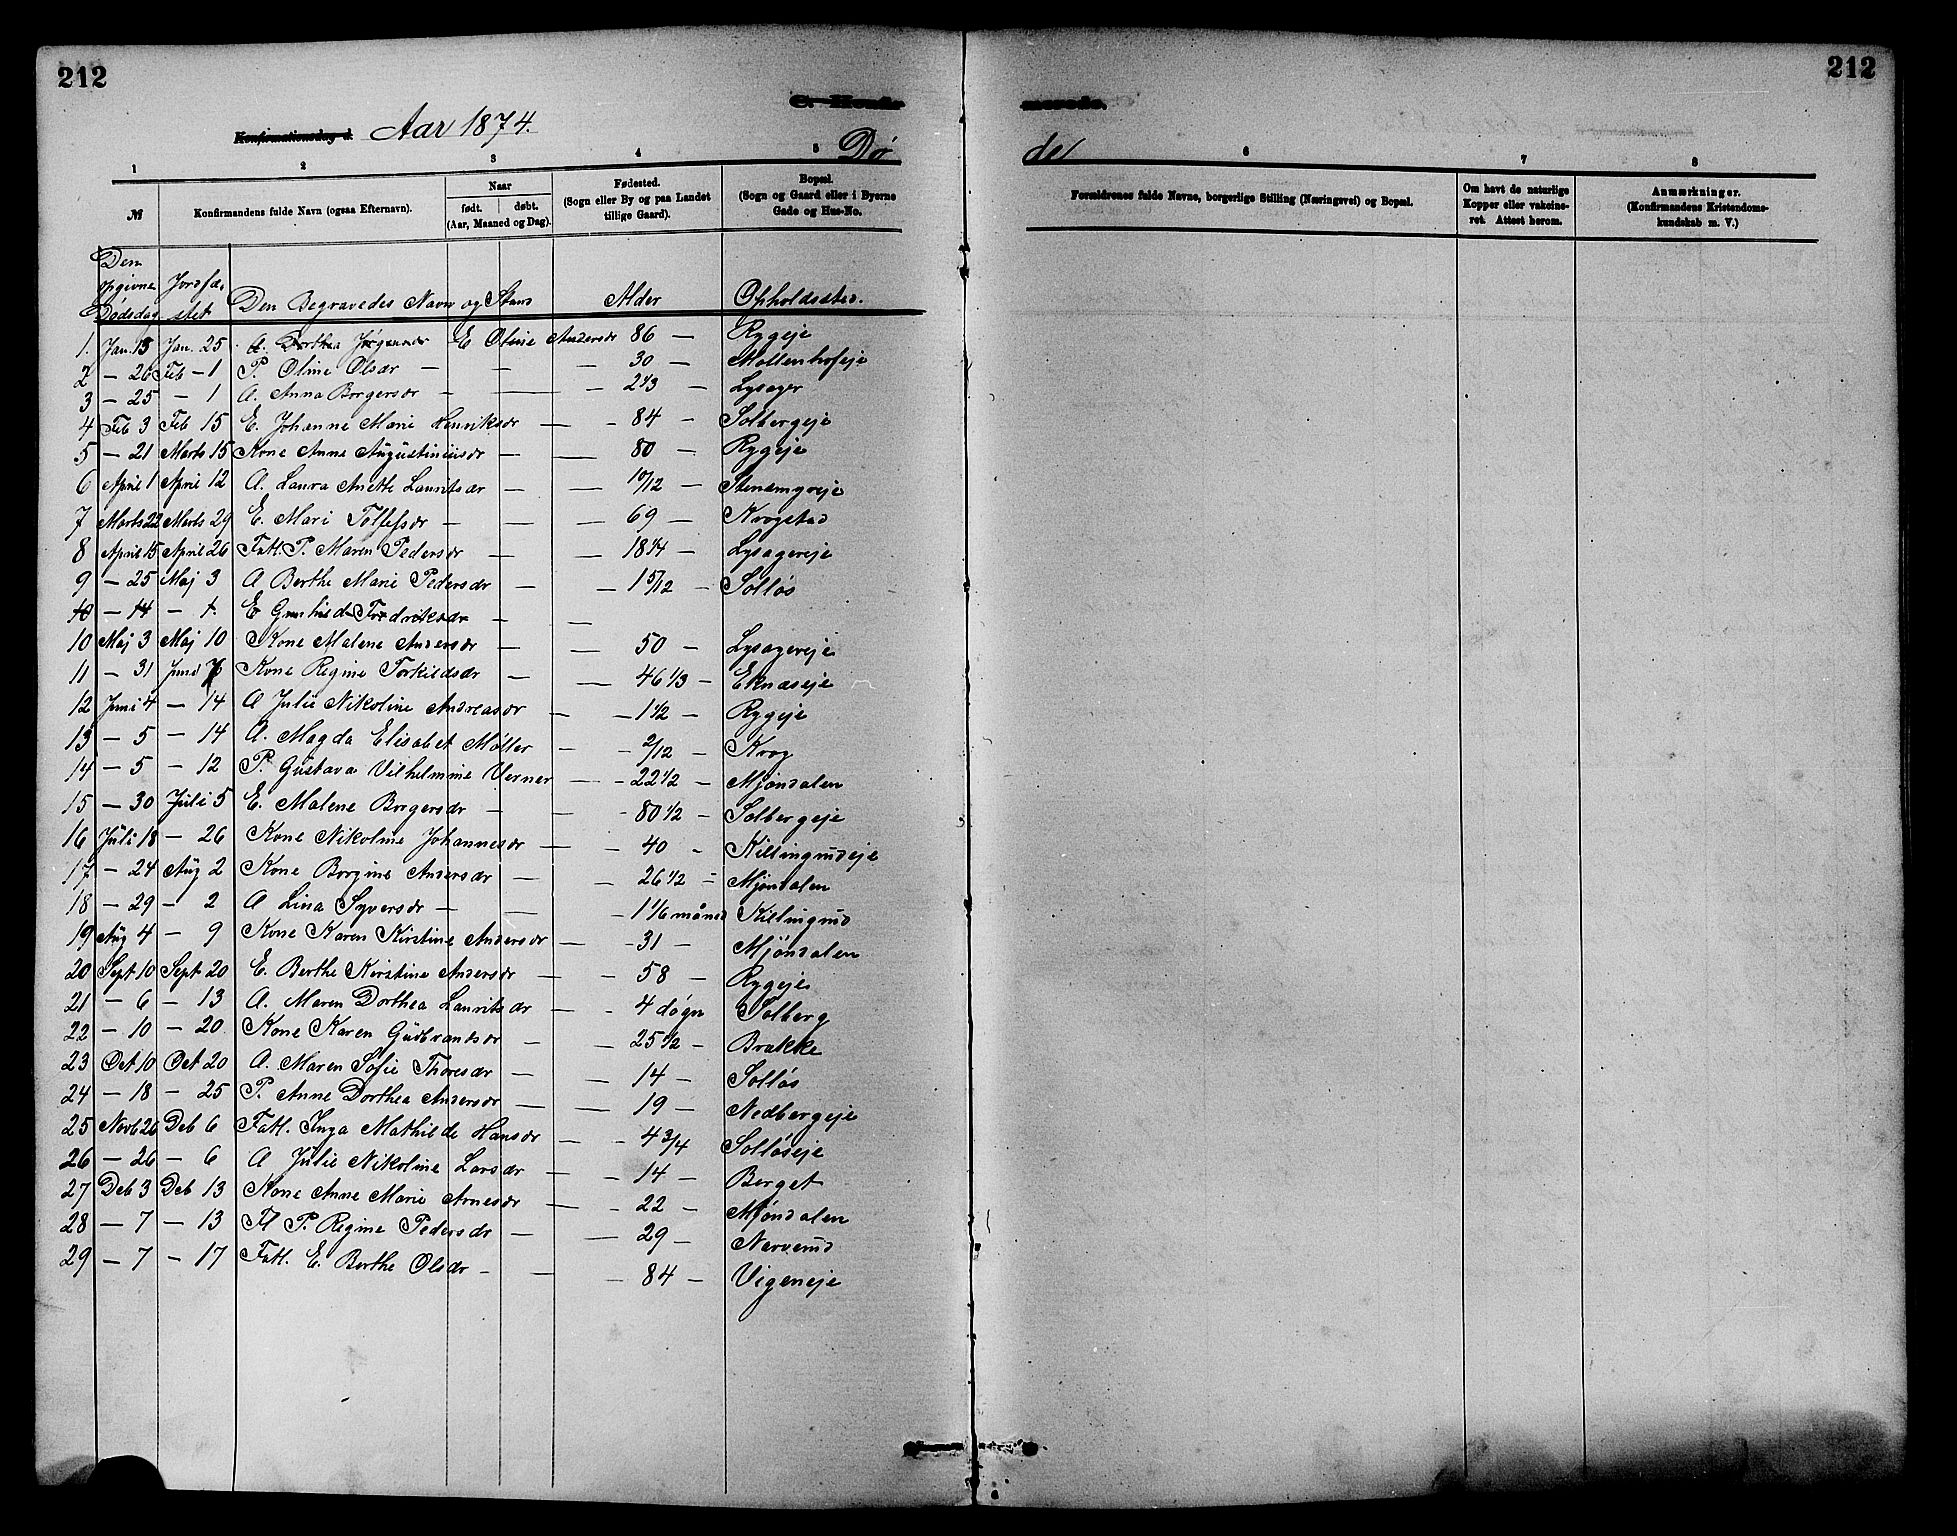 212
212
C. Konfir merede.
Konfirmationsdag d. Aar 1874.
Dø de
1 2 3 4 5 6 7 8
№ Konfirmandens fulde Navn (ogsaa Efternavn). Naar født. døbt. (Aar, Maaned og Dag). Fødested. (Sogn eller By og paa Landet tillige Gaard). Bopæl. (Sogn og Gaard eller i Byerne Gade og Hus-No. Forældrenes fulde Navne, borgerlige Stilling (Næringsvei) og Bopæl. Om havt de naturlige Kopper eller vakcineret. Attest herom. Anmærkninger. (Konfirmandens Kristendomskundskab m. V.)
Den opgivne Dødsdag Jordfæstet Den Begravedes Navn og Stand Alder Opholdssted.
1. Jan. 15 Jan. 25 A. Dorthea Jørgensdr E Oline Andersdr 86 — Rygeje
2 — 26 Feb — 1 P. Oline Olsdr — — 30 — Mollenhofeje
3 — 25 — 1 A. Anna Borgersdr — — 2 1/3 — Lysager
4 Feb 3 Feb 15 E. Johanne Marie Henriksdr — - 84 — Solbergeje
5 — 21 Marts 15 Kone Anne Augustiniusdr — — 80 — Rygeje
6 April 1 April 12 A. Laura Anette Lauritsdr — — 10/12 — Stensengreje
7 Marts 22 Marts 29 E. Mari Tollefsdr — — — 69 — Krogstad
8 April 15 April 26 Fatt. P. Maren Pedersdr — — 18 1/4 — Lysagereje
9 — 25 Maj 3 A Berthe Marie Pedersdr — — 1 5/12 — Solløs
10 — 14 — 1. E Gunhild Fredriksdr — —
10 Maj 3 Maj 10 Kone Malene Andersdr — — 50 — Lysagereje
11 — 31 Juni 7 Kone Regine Torkildsdr — — 46 1/3 — Eknæseje
12 Juni 4 — 14 A Julie Nikoline Andreasdr — — 1 1/2 — Rygeje
13 — 5 — 14 A. Magda Elisabet Møller — - 2/12 — Krog
14 — 5 — 12 P. Gustava Vilhelmine Verner — — 22 1/2 — Mjøndalen
15 — 30 Juli 5 E. Malene Borgersdr — — 80 1/2 — Solbergeje
16 Juli 18 — 26 Kone Nikoline Johannesdr — - 40 - Killingrudeje
17 — 24 Aug 2 Kone Borgine Andersdr — — 26 1/2 - Mjøndalen
18 — 29 — 2 A Lina Syversdr — — - 1 1/6 måned Killingrud
19 Aug 4 — 9 Kone Karen Kirstine Andersdr — - 31 — Mjøndalen
20 Sept 10 Sept 20 E. Berthe Kirstine Andersdr — - 58 — Rygeje
21 — 6 — 13 A. Maren Dorthea Lauritsdr — - 4 døgn Solberg
22 — 10 — 20 Kone Karen Gudbrandsdr — — 25 1/2 — Brække
23 Oct 10 Oct 20 A. Maren Sofie Thoresdr — — 14 — Solløs
24 — 18 — 25 P. Anne Dorthea Andersdr — — 19 — Nedbergeje
25 Novb 26 Deb 6 Fatt. Inga Mathilde Hansdr — — 4 3/4 Solløseje
26 — 26 — 6 A Julie Nikoline Larsdr — — 14 — Berget
27 Deb 3 Deb 13 Kone Anne Marie Arnesdr — - 22 — Mjøndalen
28 — 7 — 13 Fl P. Regine Pedersdr — — 29 — Narverud
29 — 7 — 17 Fatt. E. Berthe Olsdr — — — 84 — Vigeneje